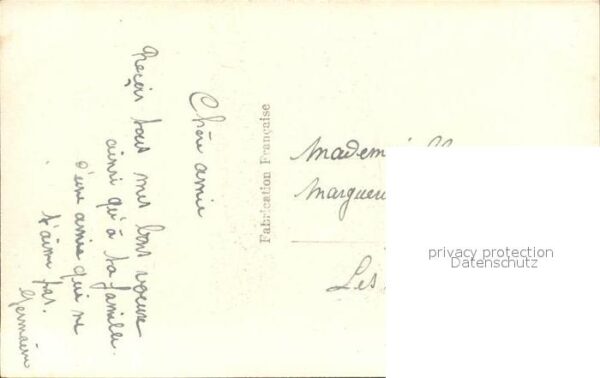 Chère amie
Reçois tous mes bons voeux
ainsi qu'à ta famille
d'une amie qui ne
t'aime pas.
Germaine
Fabrication Française
Mademoi
Margue
Les
privacy protection
Datenschutz